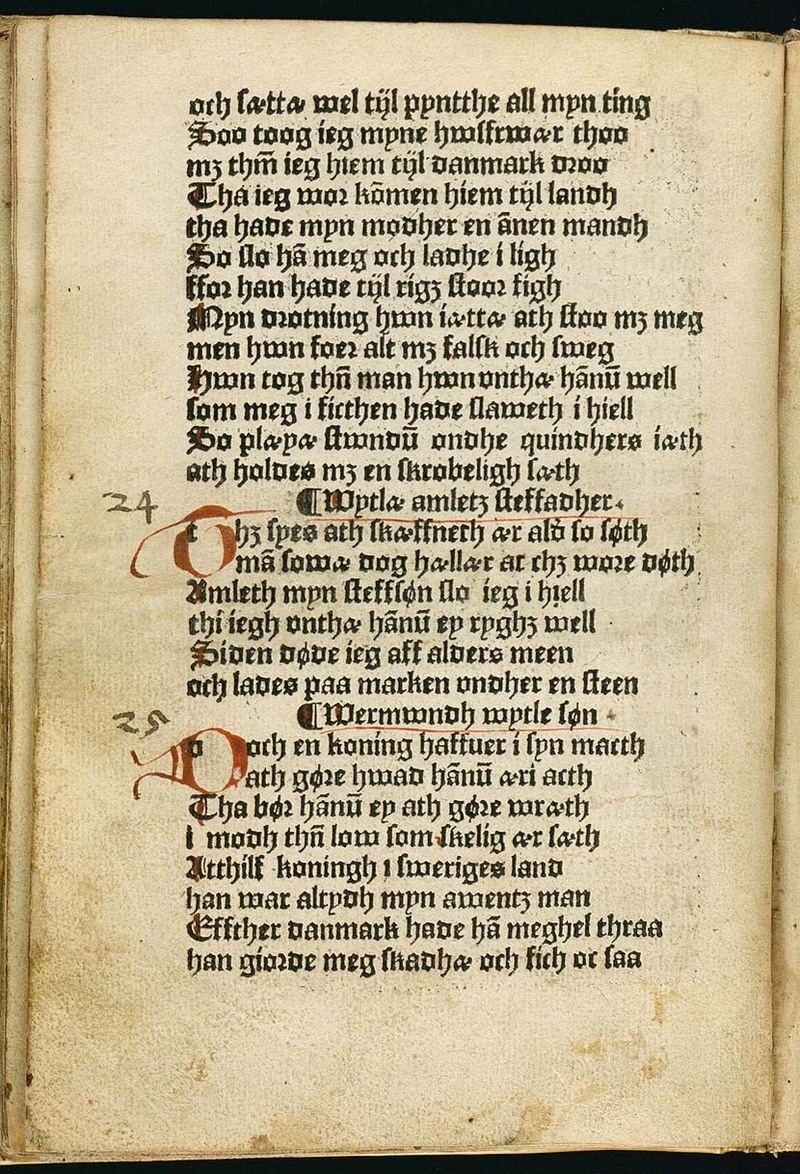 och sætta wel tijl pyntthe all myn ting
Soo toog ieg myne hwsfrwær thoo
mʒ thm̄ ieg hiem tijl danmark droo
Tha ieg wor kōmen hiem tijl landh
tha hade myn modher en ānen mandh
So slo hā meg och ladhe i ligh
ffor han hade tijl rigʒ stoor figh
Myn drotning hwn iætta ath stoo mʒ meg
men hwn foer alt mʒ falsk och sweg
Hwn tog thn̄ man hwn vntha hānū well
som meg i ficthen hade slaweth i hiell
So plæyæ stwndū ondhe quindhers iæth
ath holdes mʒ en skrobeligh sæth
24 ¶Wytlæ amletʒ steffadher
Thʒ syes ath skæffneth ær ald so søth
mā sowæ dog hællær at thʒ wore døth
Amleth myn steffsøn slo ieg i hiell
thi iegh vnthæ hānū ey ryghʒ well
Siden døde ieg aff alders meen
och lades paa marken vndher en steen
25 ¶Wermwndh wytle søn
Doch en koning haffuer i syn macth
ath gøre hwad hānū æri acth
Tha bør hānū ey ath gøre wræth
i modh thn̄ low som skelig ær sæth
Atthilf koningh i sweriges land
han war altydh myn awentʒ man
Effther danmark hade hā meghel thraa
han giorde meg skadhæ och fich oc saa